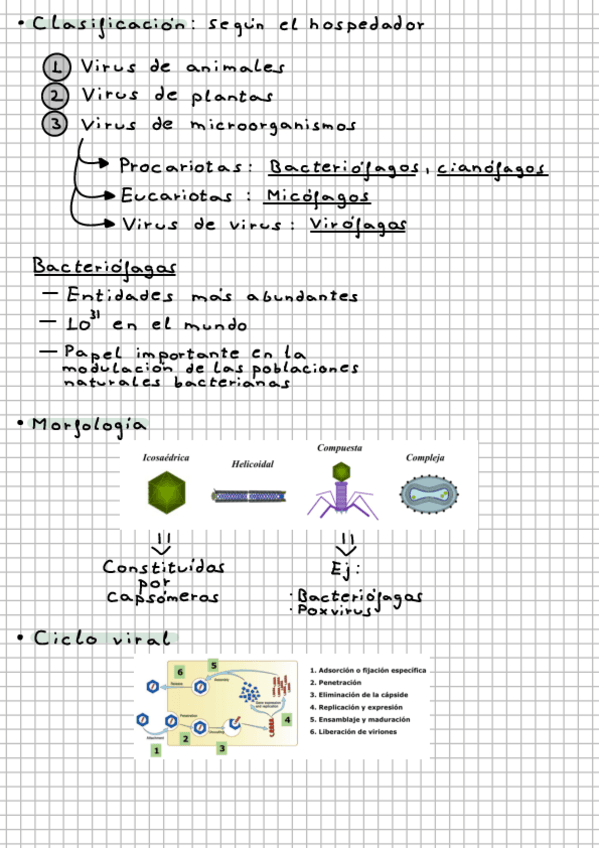 • Clasificación: según el hospedador
1 Virus de animales
2 Virus de plantas
3 Virus de microorganismos
Procariotas: Bacteriófagos, cianófagos
Eucariotas: Micófagos
Virus de virus: Virófagos
Bacteriófagos
— Entidades más abundantes
— Lo³¹ en el mundo
— Papel importante en la
modulación de las poblaciones
naturales bacterianas
• Morfología
Icosaédrica
Helicoidal
Compuesta
Compleja
Constituídas
por
capsómeras
Ej:
· Bacteriófagas
· Poxvirus
• Ciclo viral
6
5
Release
Assembly
Gene expression
and replication
4
Penetration
Uncoating
Attachment
1
2
3
1. Adsorción o fijación específica
2. Penetración
3. Eliminación de la cápside
4. Replicación y expresión
5. Ensamblaje y maduración
6. Liberación de viriones